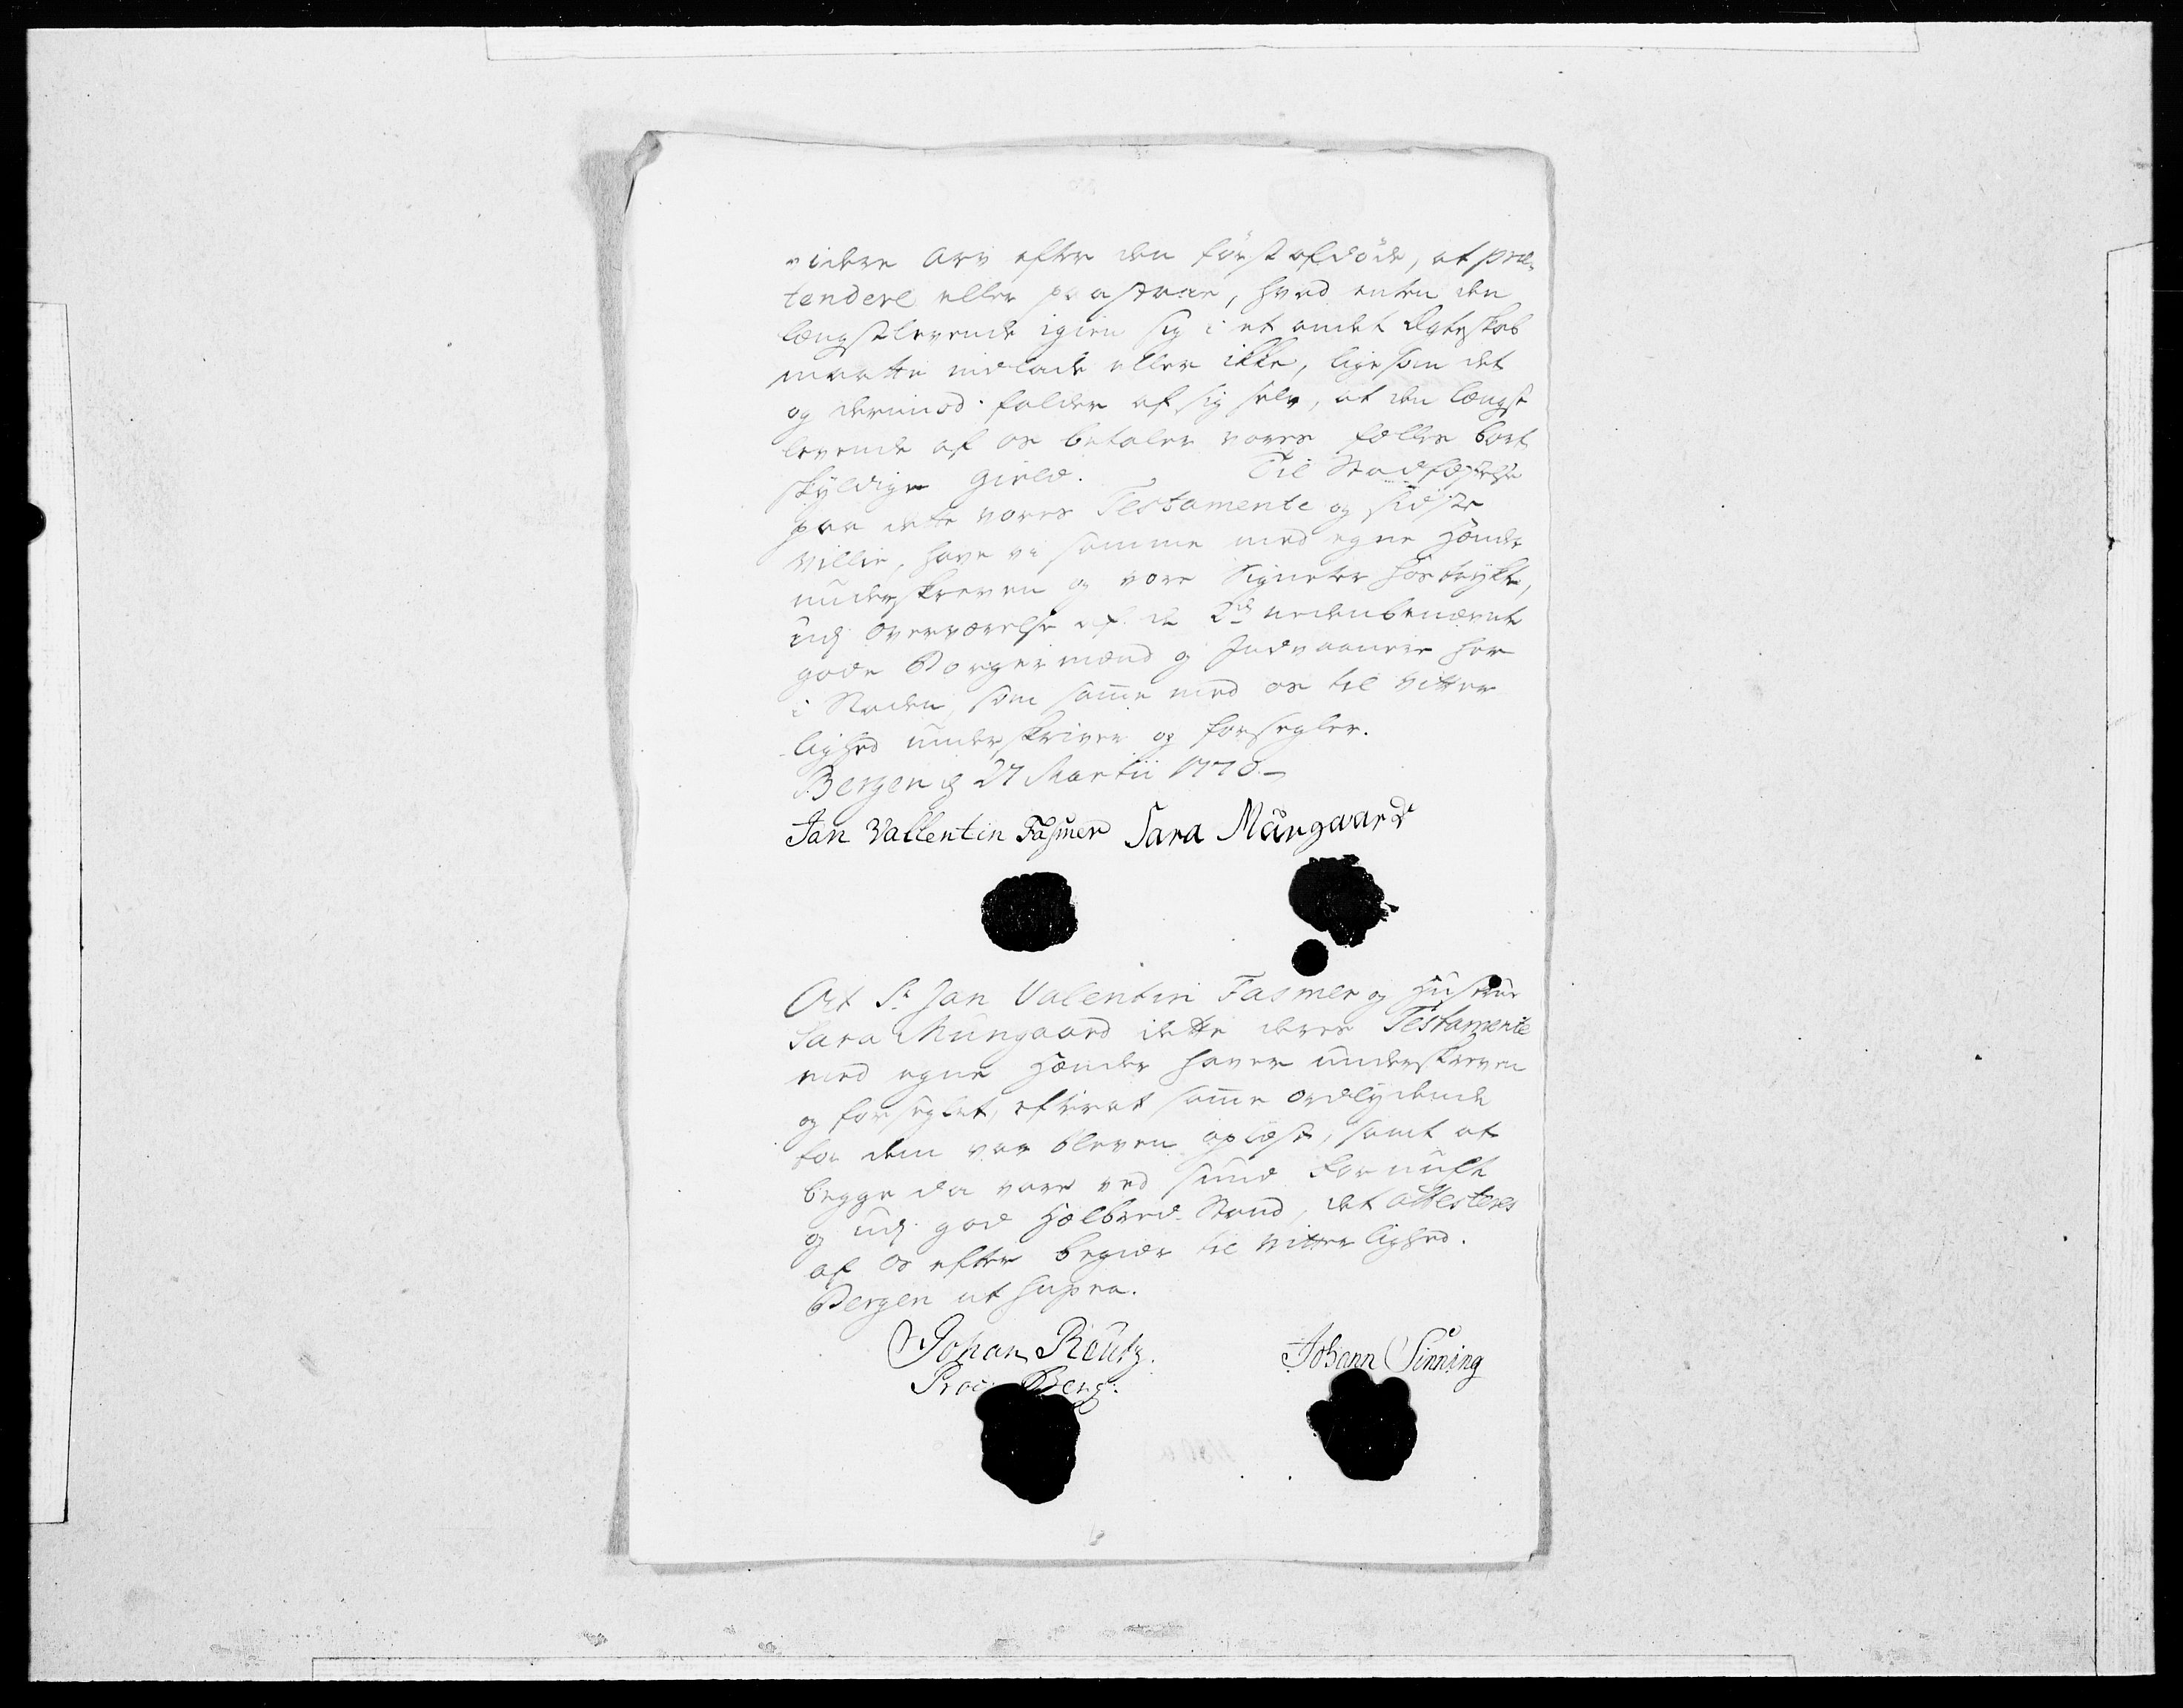 videre Arv efter den först afdöde, at præ-
tendere eller paastaae, hvad enten den
længstlevende igien sig i et andet Ægteskab
maatte indlade eller ikke, ligesom det
og derimod falder af sig selv, at den længst
levende af os betaler vores fælles bort
skyldige Gield. Til Stadfæstelse
paa dette vores Testamente og sidste
Villie, have vi samme med egne Hænder
underskreven og vore Signeter hostrykt,
udj Overværelse af de 2de nedenbenævnte
gode Borgermænd og Indvaanere her
i Staden, som samme med os til Vitter
lighed underskriver og forsegler.
Bergen d 27 Martii 1770.
Jan Vallentin Fasmer Sara Müngaard
At Sr Jan Valentin Fasmer og Hustrue
Sara Müngaard dette deres Testamente
med egne Hænder haver underskreven
og forseglet, efterat samme ordlydende
for dem var bleven oplæst, samt at
begge da vare ved sund Fornuft
og udj god Helbred Stand, det attesteres
af os efter begiær til Vitterlighed.
Bergen ut supra.
Johan Reutz. Johann Sinning
Proc: Berg: